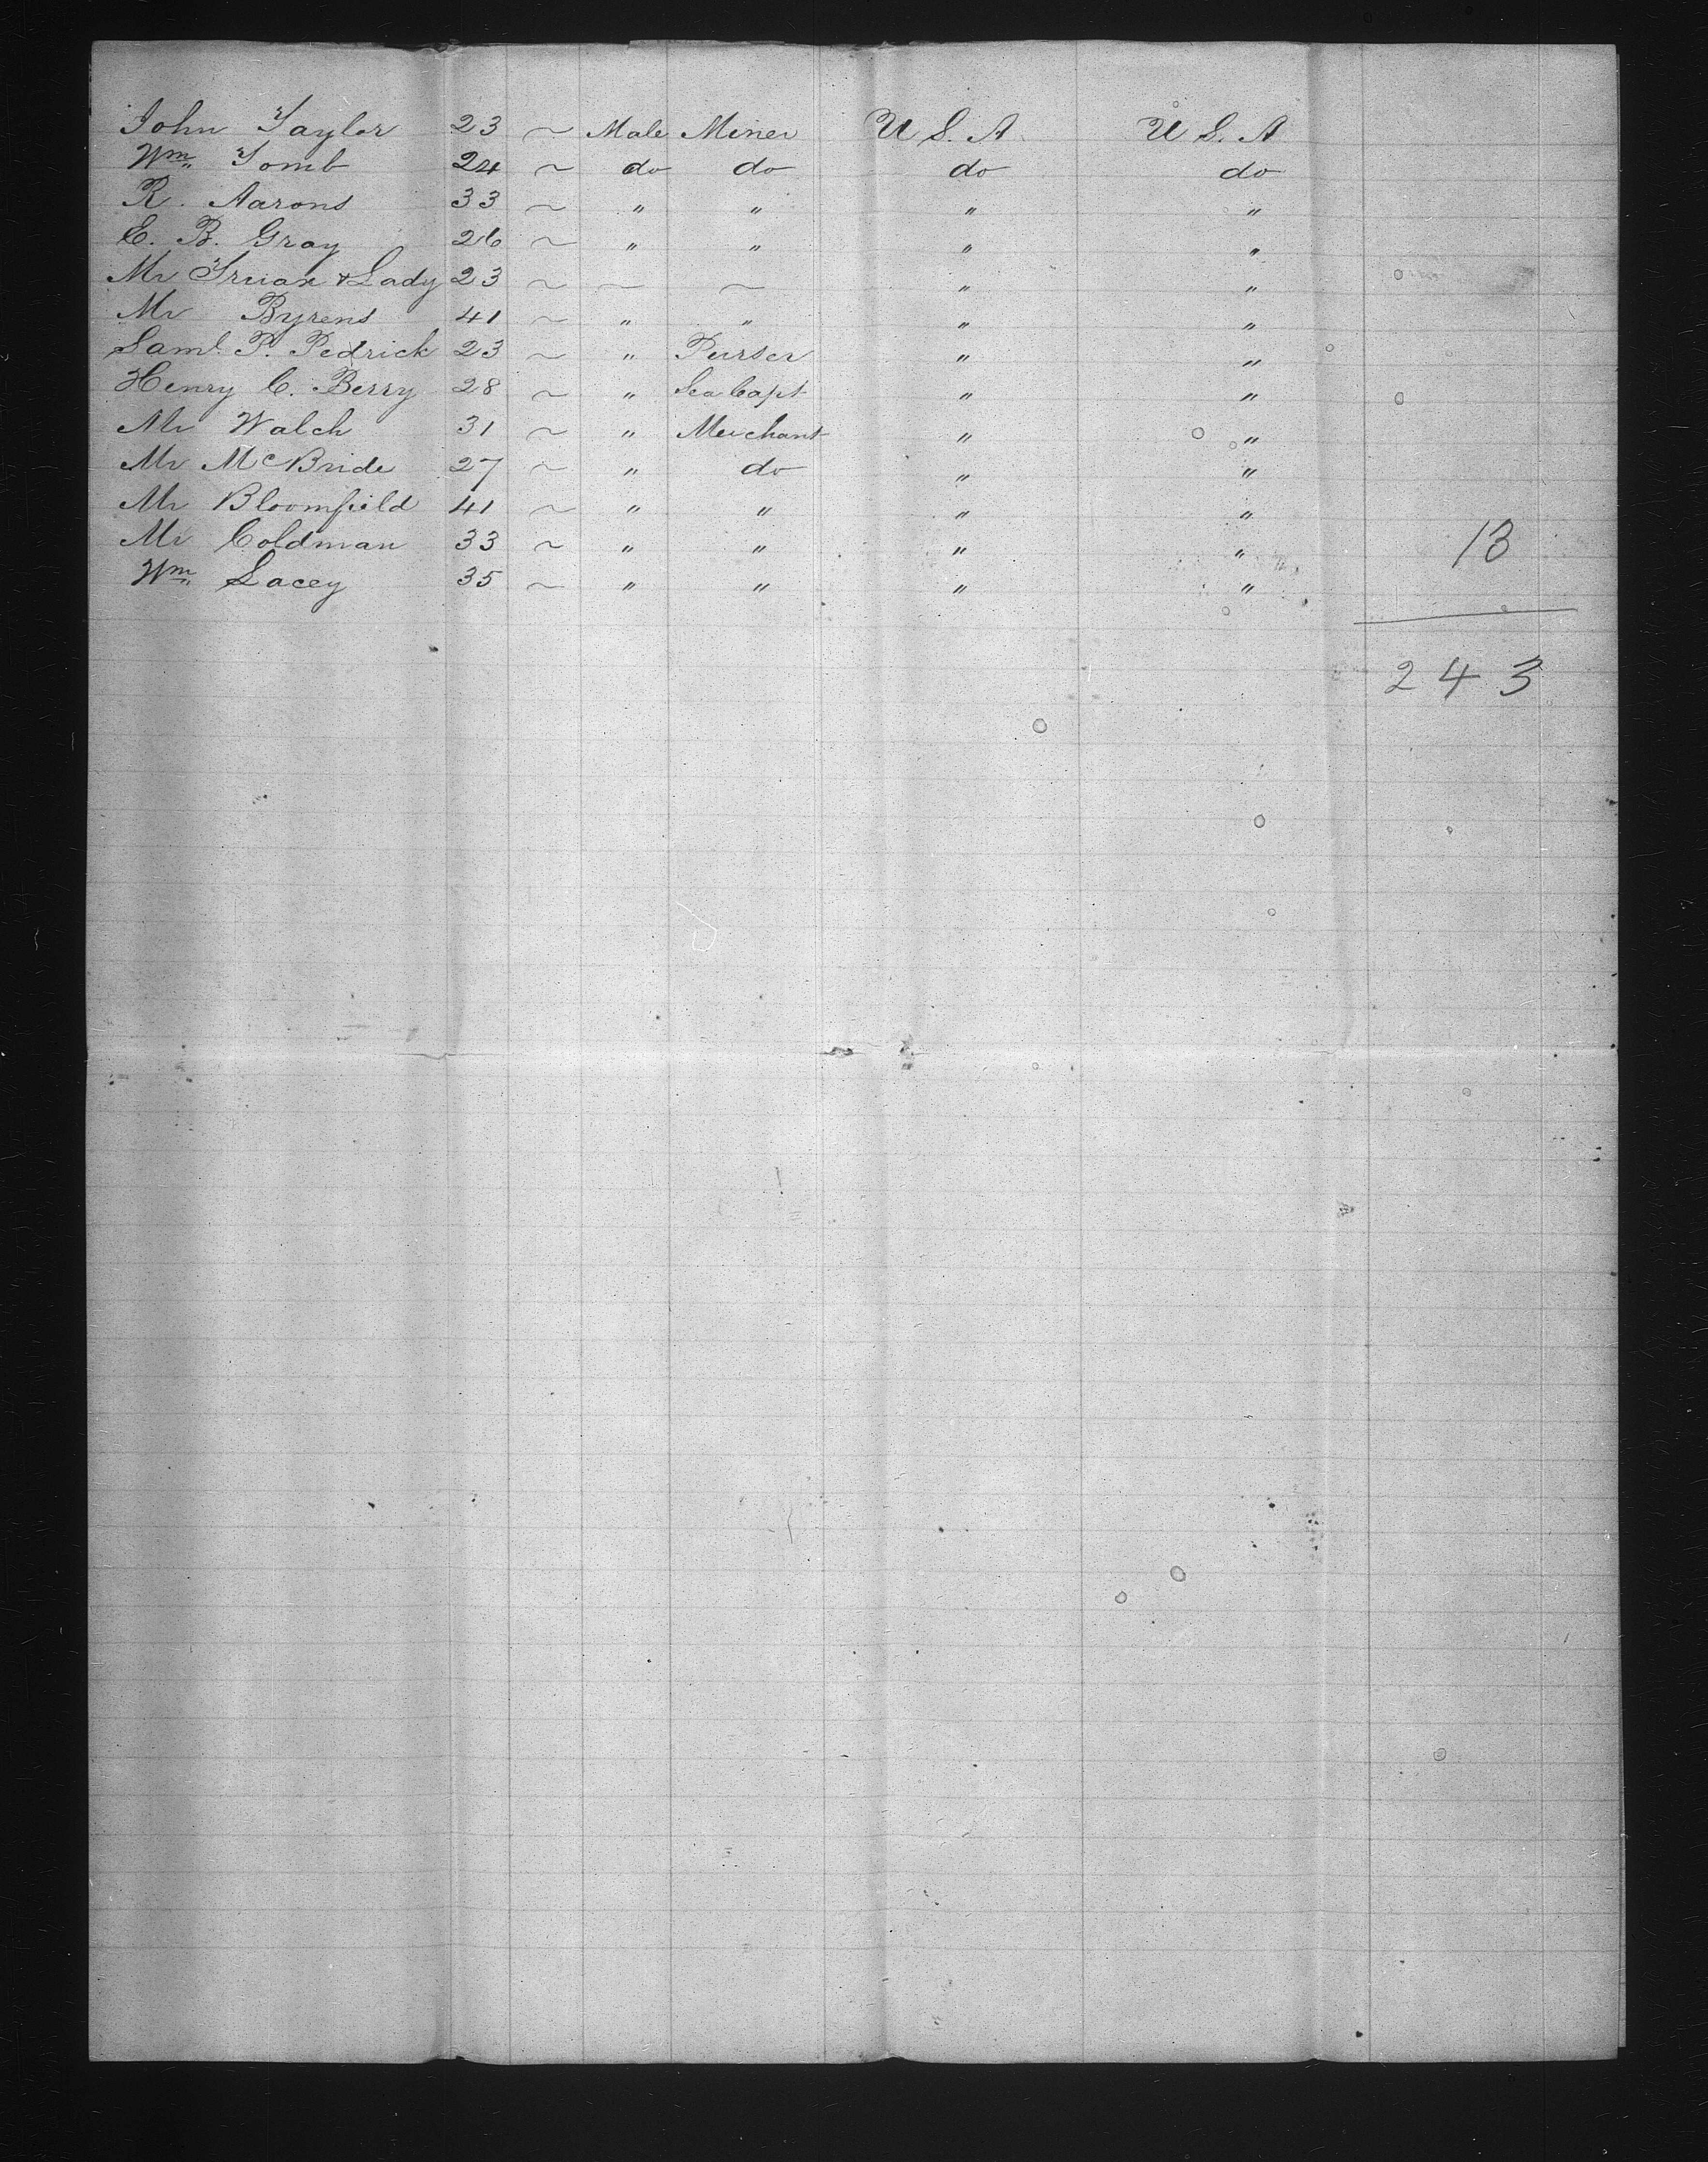 John Taylor 23 ~ Male Miner U S. A. U S. A
Wm Tomb 24 ~ do do do do
R. Aarons 33 ~ " " " "
E. B. Gray 26 ~ " " " "
Mr Truax & Lady 23 ~ ~ ~ " "
Mr Byrens 41 ~ " " " "
Saml. P. Pedrick 23 ~ " Purser " "
Henry C. Berry 28 ~ " Sea Capt " "
Mr Walch 31 ~ " Merchant " "
Mr McBride 27 ~ " do " "
Mr Bloomfield 41 ~ " " " "
Mr Coldman 33 ~ " " " " 13
Wm Lacey 35 ~ " " " "
243